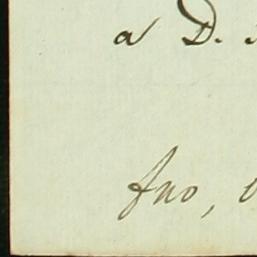 a D.
fno,